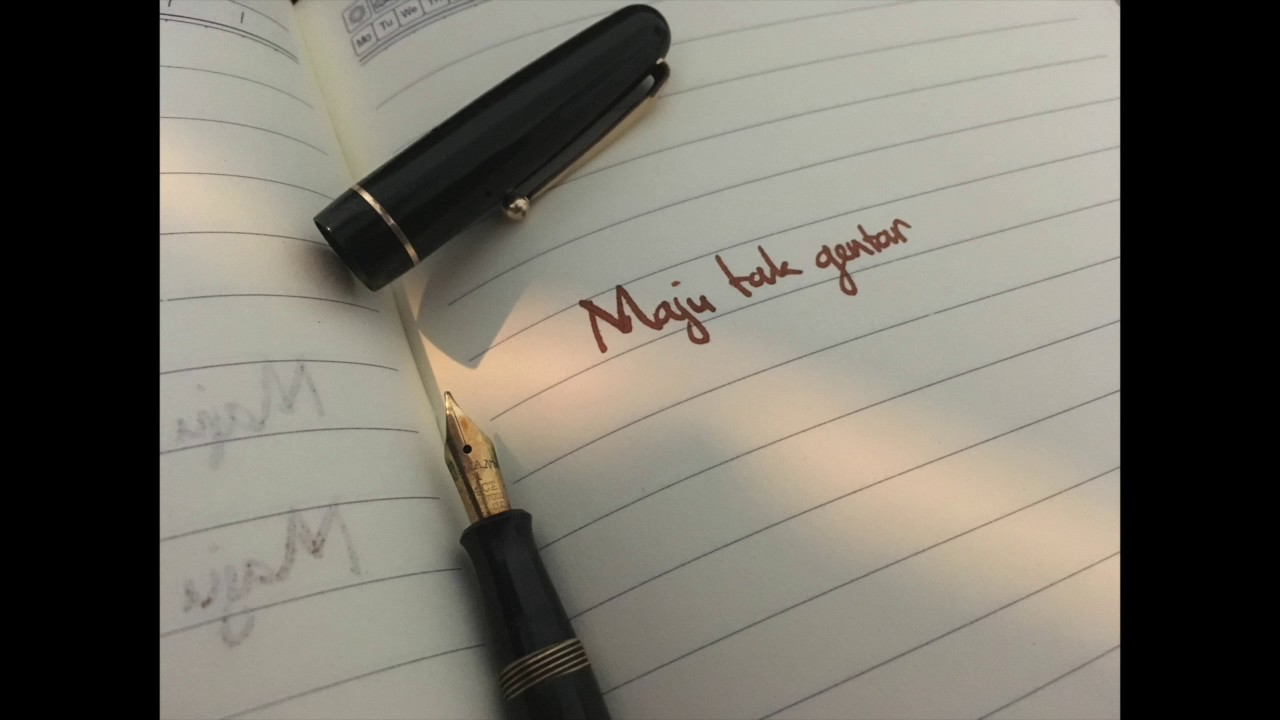 Mo Tu We
Maju tak gentar
Maju
Maju